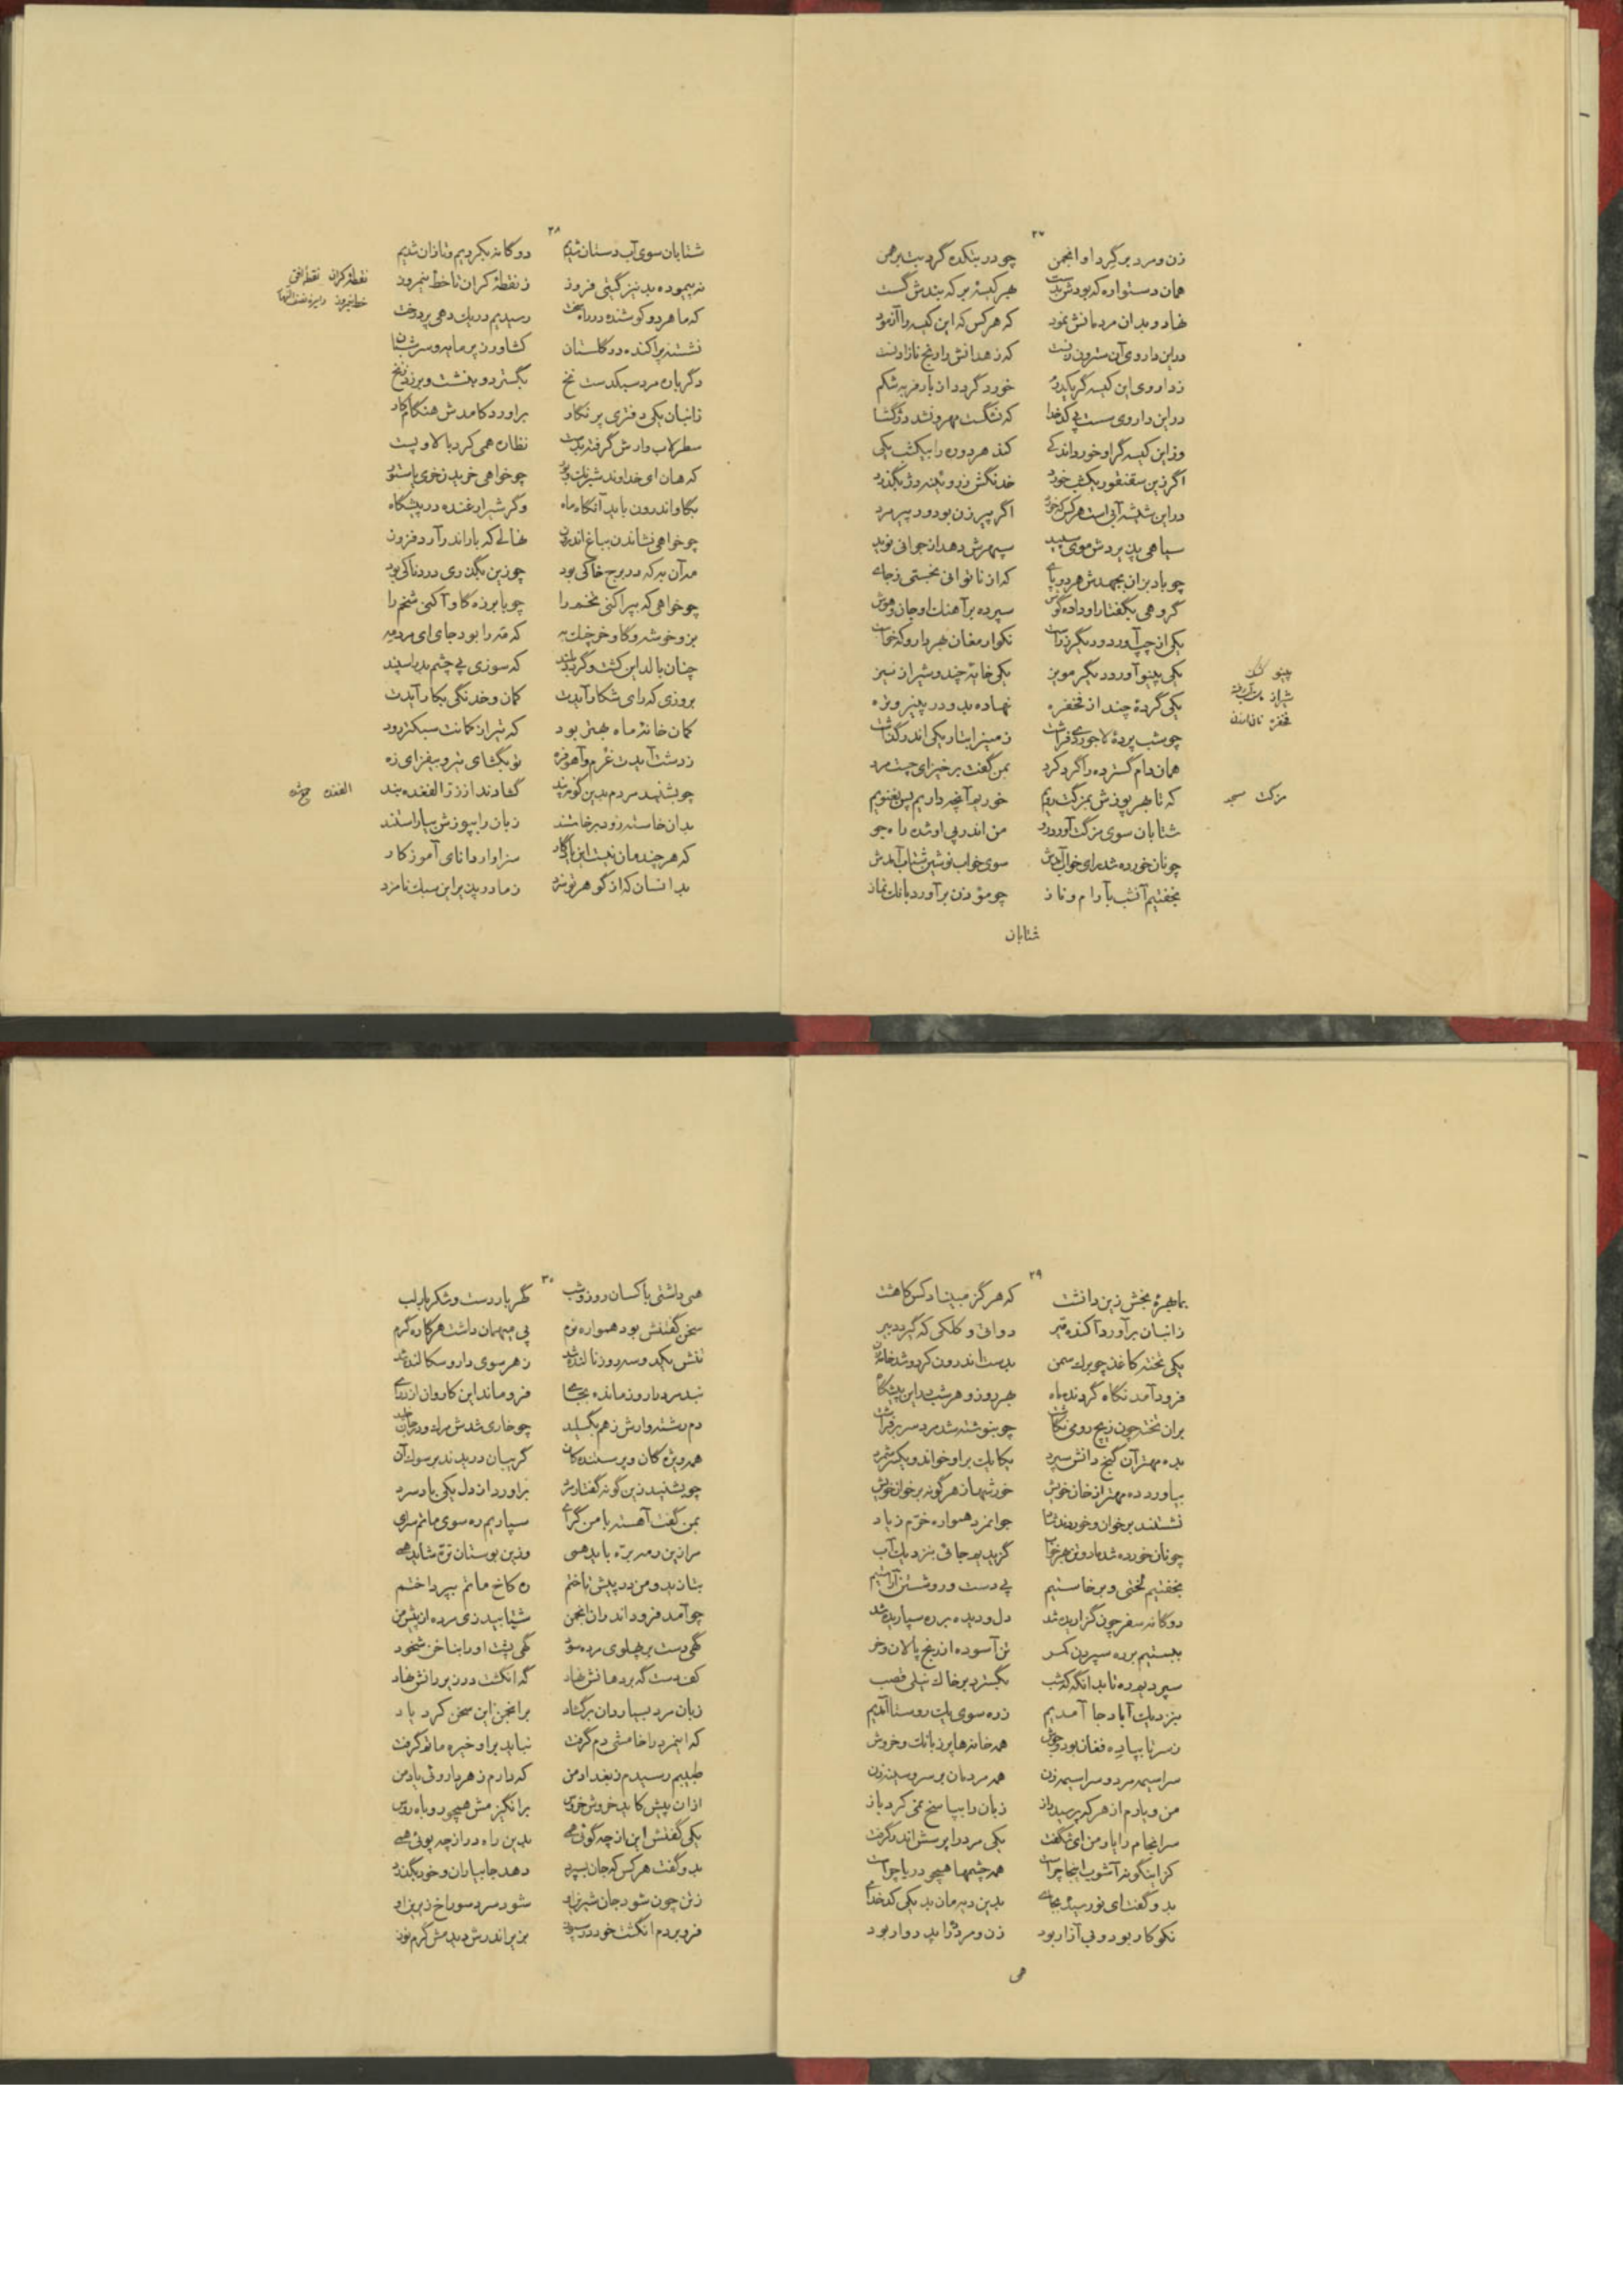 ۲۷
زن و مرد بر گرد او انجمن چو در بتکده گرد بت برهمن
همان دستواره که بودش بدست بهر کیسهٔ بر که بندش گسست
نهاد و بدان مردمانش نمود که هر کس که این کیسه را آزمود
در این داروی آن سترون زنست که زهدانش را رنج نازادنست
ز داروی این کیسه گر یکدرم خورد گردد از بار فربه شکم
در این داروی سست پی کدخدا که نگسست مهر و نشد دژگشا
وز این کیسه گر او خورد اندکی کند هر دو ره را بیکشب یکی
اگر زین سقنقور یکشب خورد خدنگش ز روئینه دژ بگذرد
در این شیشه آبی است هر کس که خورد اگر پیر زن بود ور پیر مرد
سیاهی پذیردش موی سپید سپهرش دهد از جوانی نوید
چو باد بزان بجهدش هر دو پای که از ناتوانی نجستی ز جای
گروهی بگفتار او داده گوش سپرده بر آهنگ او جان و هوش
یکی از چپ آورد و دیگر ز راست نکو ارمغان بهر دارو که خواست
یکی پینو آورد و دیگر مویز یکی خایهٔ چند و شیراز نیز
پینو کشک
یکی گردهٔ چند از فخفره نهاده بدو در پنیر و تره
چو شب پردهٔ لاجوردی فراشت زمین را بتاریکی اندر گذاشت
همان دام گسترده را گرد کرد بمن گفت برخیز ای چست مرد
که تا بهر پوزش بمزگت رویم خوریم آنچه داریم پس بغنویم
مزگت مسجد
شتابان سوی مزگت آورد رو من اندر پی او شده راه جو
چو نان خورده شد رای خواب آمدش سوی خواب نوشین شتاب آمدش
بخفتیم آنشب بآرام و ناز چو مؤذن برآورد بانک نماز
شتابان
۲۸
شتابان سوی آب دستان شدیم دوگانه بکردیم و تازان شدیم
نه پیموده بد نیز گیتی فروز ز نقطهٔ کران تا خط نیمروز
نقطهٔ کران نقطهٔ افق
خط نیمروز دایره نصف النهار
که ما هر دو کوشنده در راه سخت رسیدیم در یک دهی پر درخت
نشستند پراکنده در گلستان کشاورز پر مایه و سرشبان
دگر باره مرد سبکدست نخ بگسترد و بنشست و برزد زنخ
ز انبان یکی دفتری پر نگار برآورد کامدش هنگام کار
سطرلاب وارش گرفته بدست نظاره همی کرد بالا و پست
که هان ای خداوند شیراز و پو چو خواهی خرید ز خری یا ستو
بگاو اندرون باید آنگاه ماه وگر شیر ارغنده در پیشگاه
چو خواهی نشاندن بباغ اندرون نهالی که بار اندر آرد فزون
مه آن به که در برج خاکی بود چو زین بگذری دردناکی بود
چو خواهی که بپراکنی تخم را چو با برزه گاو آکنی شخم را
بز و خوشه و گاو و خرچنگ به که مه را بود جای ای مرد مه
چنان بالد این کشت و گردد بلند که سوزی پی چشم بد را سپند
بروزی که رای شکار آیدت کمان و خدنگی بکار آیدت
کمان خانهٔ ماه بهتر بود که تیر از کمانت سبکتر رود
ز دشت آیدت غرم و آهو فره تو بگشای تیر و بیفزای زه
چو بشنید مردم بدین گونه پند گشادند از زر الفغده بند
بدان خاسته زود برخاستند زبان را بپوزش بیاراستند
که هر چند مان نیست این پایگاه سزاوار دانای آموزگار
بدانسان که از گوهر تو سزد ز ما در پذیر این سبک نامزد
۲۹
بما بهرهٔ بخش زین دانشت که هرگز مبیناد کس کاهشت
ز انبان برآورد آکنده قیر دواتی و کلکی که گیرد دبیر
یکی تخته کاغذ چو برگ سمن بدست اندرون کرد و شد خامه زن
فرود آمد نگاه گردنده ماه بهر روز و هر شب بد این پیشگاه
بران تخته چون زیچ رومی نگاشت چو بنوشته شد مرد سر بر فراشت
بده مهتر آن گنج دانش سپرد یکایک بر او خواند و یکسر شمرد
بیاورد ده مهتر از خان خویش خورشها ز هر گونه بر خوان خویش
نشستند بر خوان و خوردند شاد جوانمرد همواره خرم زیاد
چو نان خورده شد یار و من هر خواب گزیدیم جائی بنزدیک آب
بخفتیم لختی و برخاستیم پی دست و رو شستن آراستیم
دوگانه سفر چون گزاریده شد دل و دیده بره سپاریده شد
ببستیم بر ره سپردن کمر تن آسوده از رنج پالان و خر
سپردیم ره تا بدانگه که شب بگسترد بر خاک نیلی قصب
بنزدیک آباد جا آمدیم ز ره سوی یک روستا آمدیم
ز سر تا بپا ده فغان بود و جوش همه خانه ها پر ز بانک و خروش
سراسیمه مرد و سراسیمه زن همه مردمان بر سر و سینه زن
من و یارم از هر که پرسید راز زبان را بپاسخ نمی کرد باز
سرانجام را یار من ای شگفت یکی مرد را پرسش اندر گرفت
کز اینگونه آشوب اینجا چراست همه چشمها همچو دریا چراست
بدو گفت ای نو رسیده بجای بدین ده مان بد یکی کدخدای
نکو کار بود و بی آزار بود زن و مرد را بد روادار بود
همی
۳۰
همی داشتی با کسان روز و شب گهر بار دست و شکر بار لب
سخن گفتنش بود همواره نرم پی میهمان داشت هر کاره گرم
تنش یکدو سه روز نالنده شد ز هر سوی دارو سگالنده شد
نبد مرد دارو ز مانده بجای فرو ماند این کاروان از درای
دم رشته وارش ز هم بگسلید چو خاری شدش مرگ و در جان خلید
همه ویژه گان و پرستنده گان گریبان دریدند بر سوک آن
چو بشنید زین گونه گفتار مرد برآورد از دل یکی باد سرد
بمن گفت آهسته با من گرای سپاریم ره سوی ماتم سرای
مر از این رمه بره باید همی وزین بوستان تره شاید همی
بشانید و من در پیش تاختم ره کاخ ماتم بپرداختم
چو آمد فرود اندران انجمن شتابید زی مرده از پیش من
گهی دست بر پهلوی مرده سود گهی پشت او را بناخن شخود
کف دست گه بر دهانش نهاد گه انگشت در زیر رانش نهاد
زبان مرد بسیار دان برگشاد بر انجمن این سخن کرد یاد
که اینمرد را خامشی دم گرفت نباید بر او خیره ماتم گرفت
طبیبم رسیدم ز بغداد من که دارم ز هر داروئی یاد من
از ان پیش کاید خروش خروس برانگیزمش همچو روباه روس
یکی گفتش این یاوه چه گوئی همی بدین راه دراز چه پوئی همی
بدو گفت هر کس که جان بسپرد دهد جا بیاران و خود بگذرد
ز تن چون شود جان شیرین او شود سرد سوراخ زیرین او
فرو بردم انگشت خود در سپوز بزیر اندرش دیدمش گرم توز